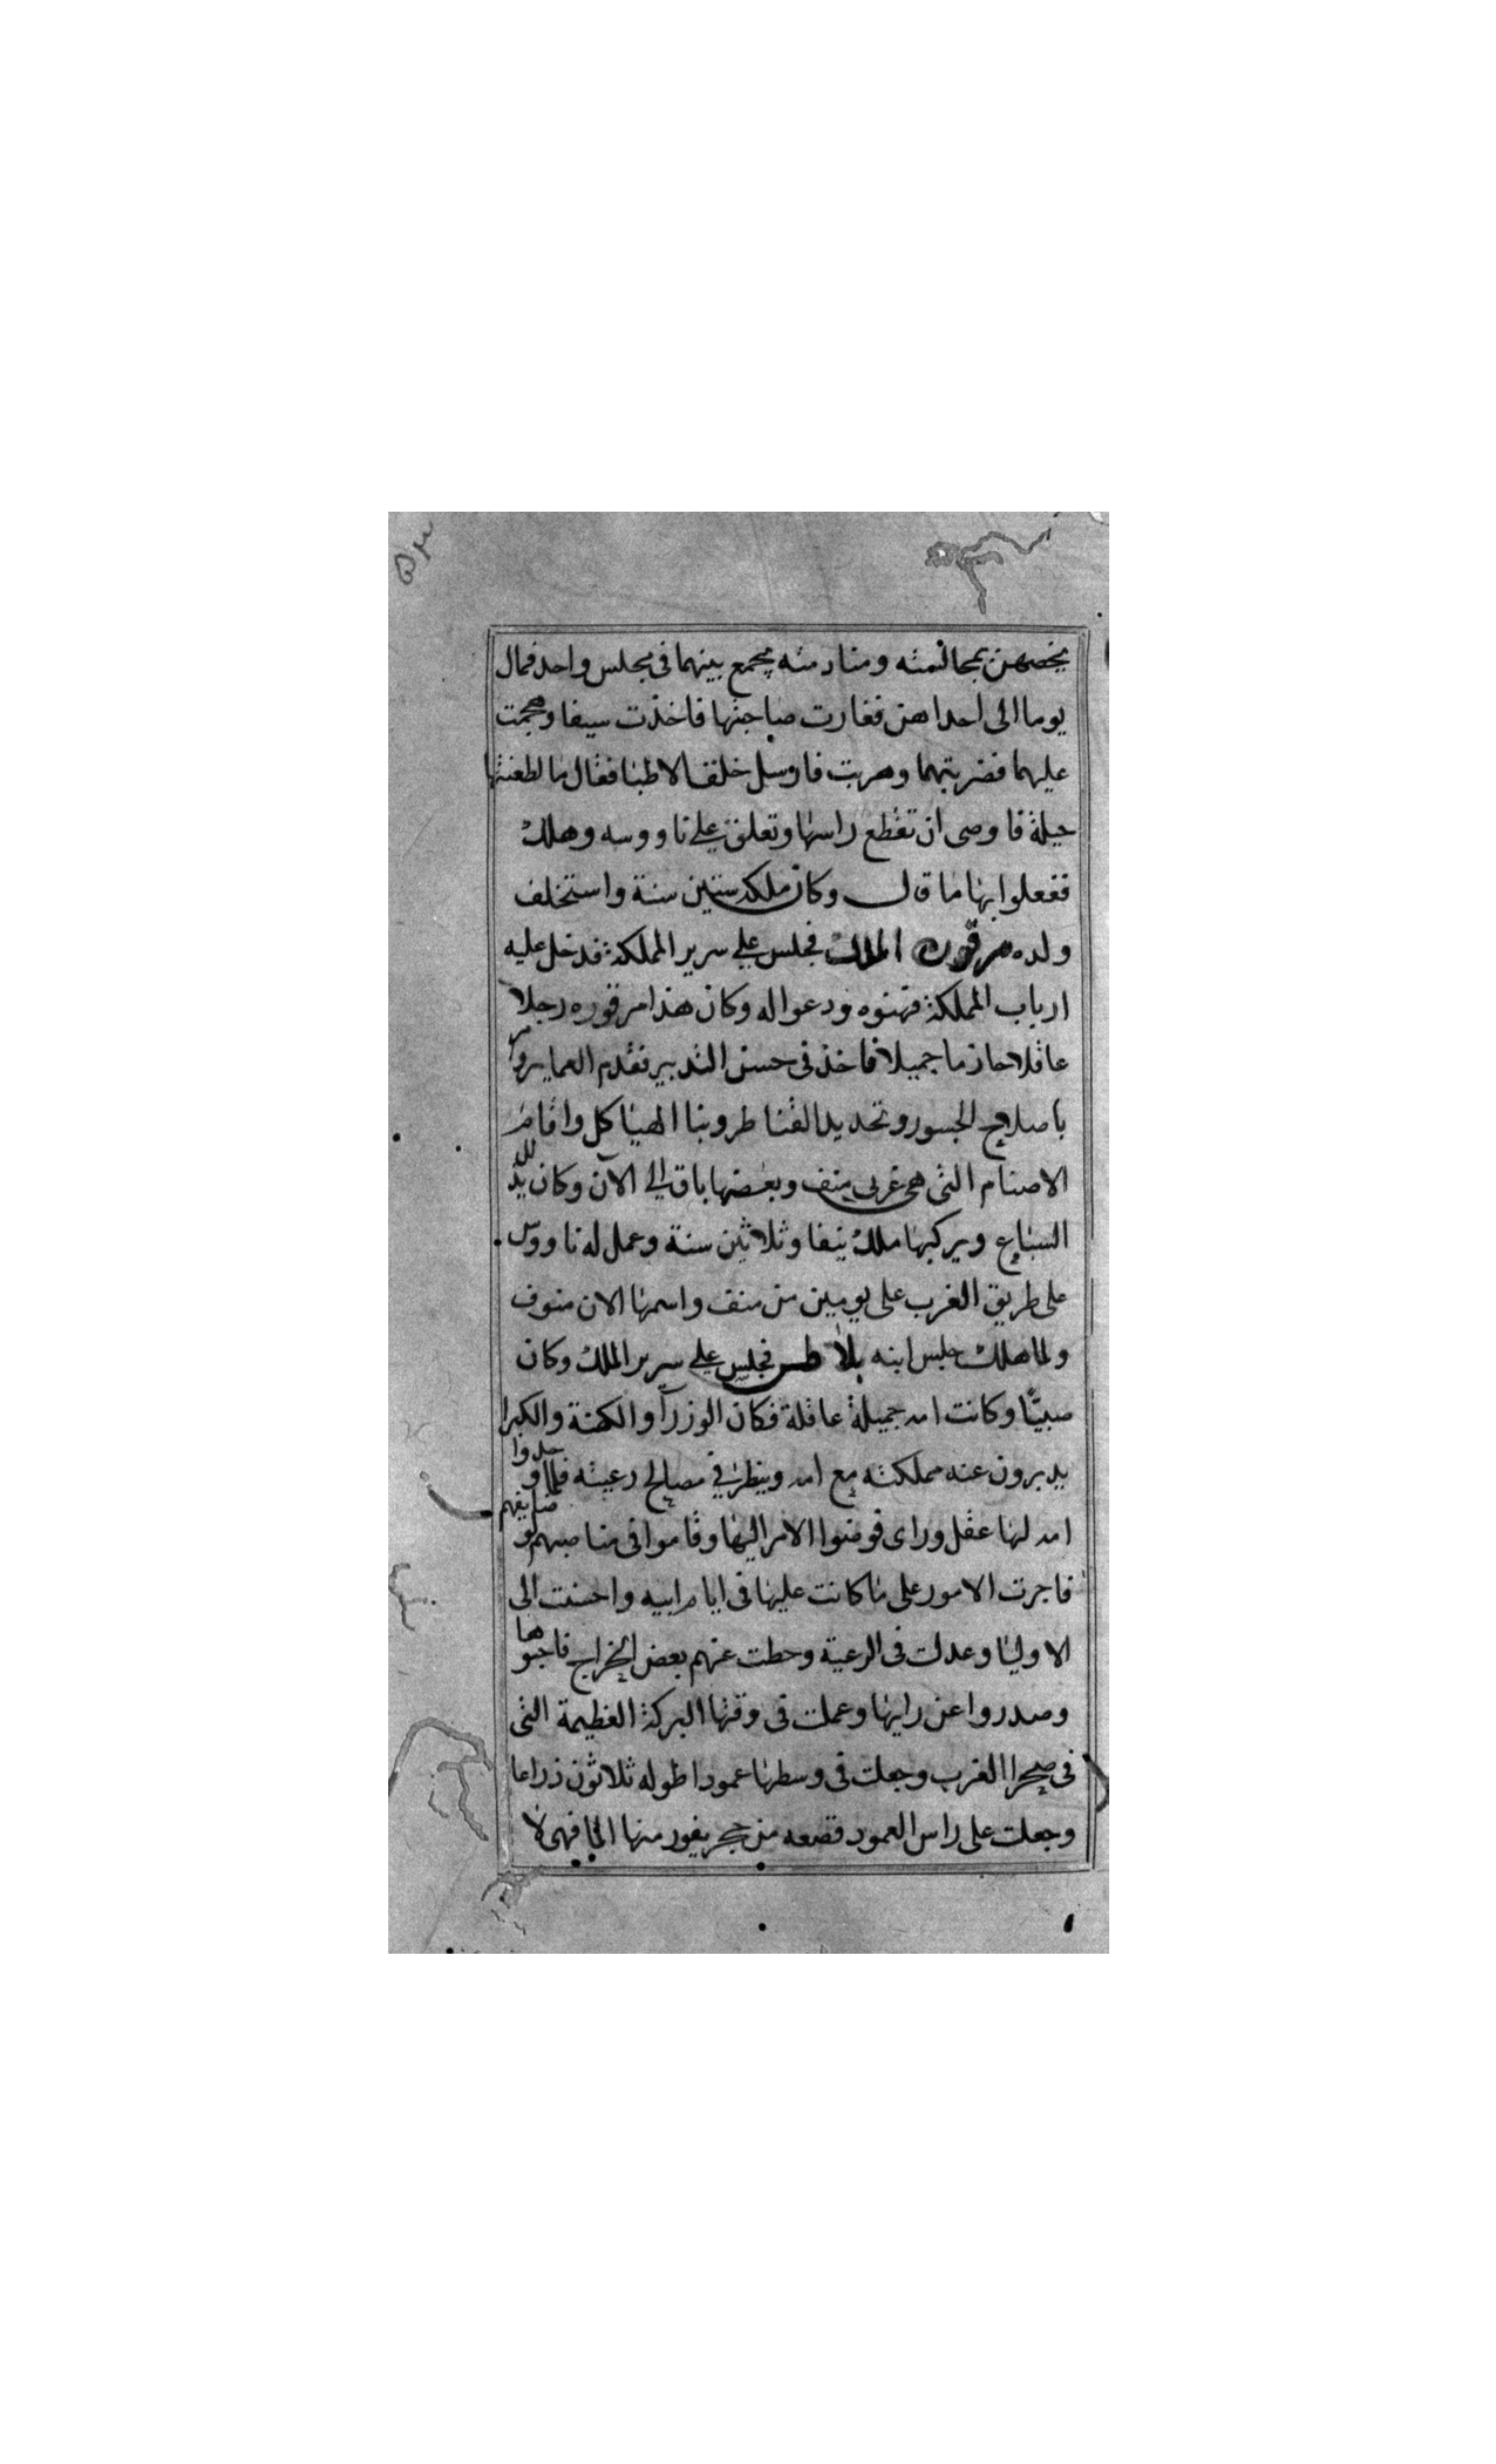 ٥٣
يخصهن بمجالسته ومنادمته فجمع بينهما فى مجلس واحد فمال
يوما الى احداهن فغارت صاحبتها فاخذت سيفا وهجمت
عليهما فضربتهما وهربت فارسل خلف الاطبا فقال ما لطعنتها
حيلة فاوصى ان تقطع راسها وتعلق على ناووسه وهلك
ففعلوا بها ما قال وكان ملكه ستين سنة واستخلف
ولده مرقوره الملك فجلس على سرير المملكة فدخل عليه
ارباب المملكة فهنوه ودعوا له وكان هذا مرقوره رجلا
عاقلا حازما جميلا فاخذ فى حسن التدبير فقدم العماير وامر
باصلاح الجسور وتجديد القناطر وبنا الهياكل واقام
الاصنام التى هى غربى منف وبعضها باق الى الآن وكان يذلل
السباع ويركبها ملك نيفا وثلاثين سنة وعمل له ناووس
على طريق الغرب على يومين من منف واسمها الان منوف
ولما هلك جلس ابنه بلاطس فجلس على سرير الملك وكان
صبيًا وكانت امه جميلة عاقلة فكان الوزرآ والكهنة والكبرا
يدبرون عنه مملكته مع امه وينظر فى مصالح رعيته فلما وجدوا
امه لها عقل وراى فوضوا الامر اليها وقاموا فى مناصبهم ووظايفهم
فاجرت الامور على ما كانت عليها فى ايام ابيه واحسنت الى
الاوليا وعدلت فى الرعية وحطت عنهم بعض الخراج فاحبوها
وصدروا عن رايها وعملت فى وقتها البركة العظيمة التى
فى صحرا الغرب وجعلت فى وسطها عمودا طوله ثلاثون ذراعا
وجعلت على راس العمود قصعه من حجر يفور منها الما فهى لا